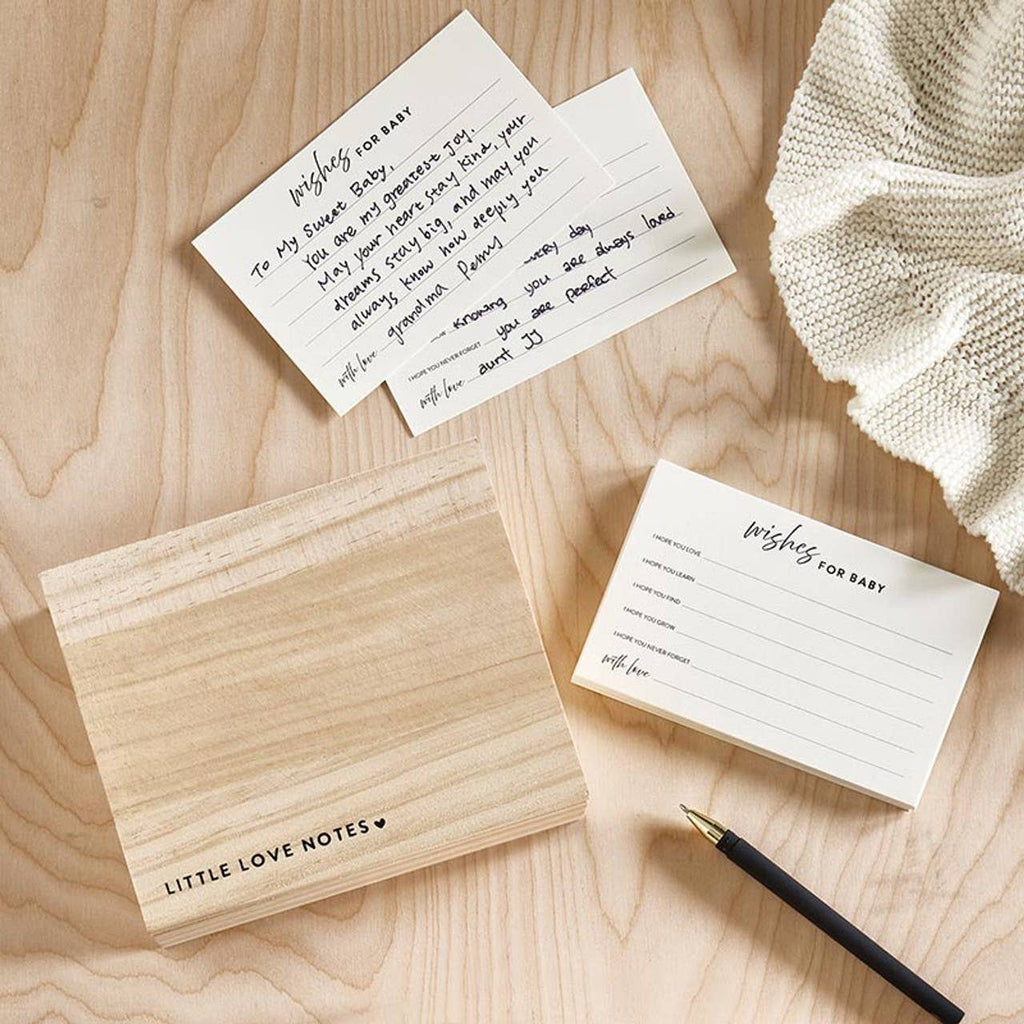 wishes FOR BABY
To My Sweet Baby,
You are my greatest joy.
May your heart stay kind, your
dreams stay big, and may you
always know how deeply you
grandma Penny
with love
day
knowing you are always loved
I HOPE YOU NEVER FORGET you are perfect
with love aunt JJ
wishes FOR BABY
I HOPE YOU LOVE
I HOPE YOU LEARN
I HOPE YOU FIND
I HOPE YOU GROW
I HOPE YOU NEVER FORGET
with love
LITTLE LOVE NOTES